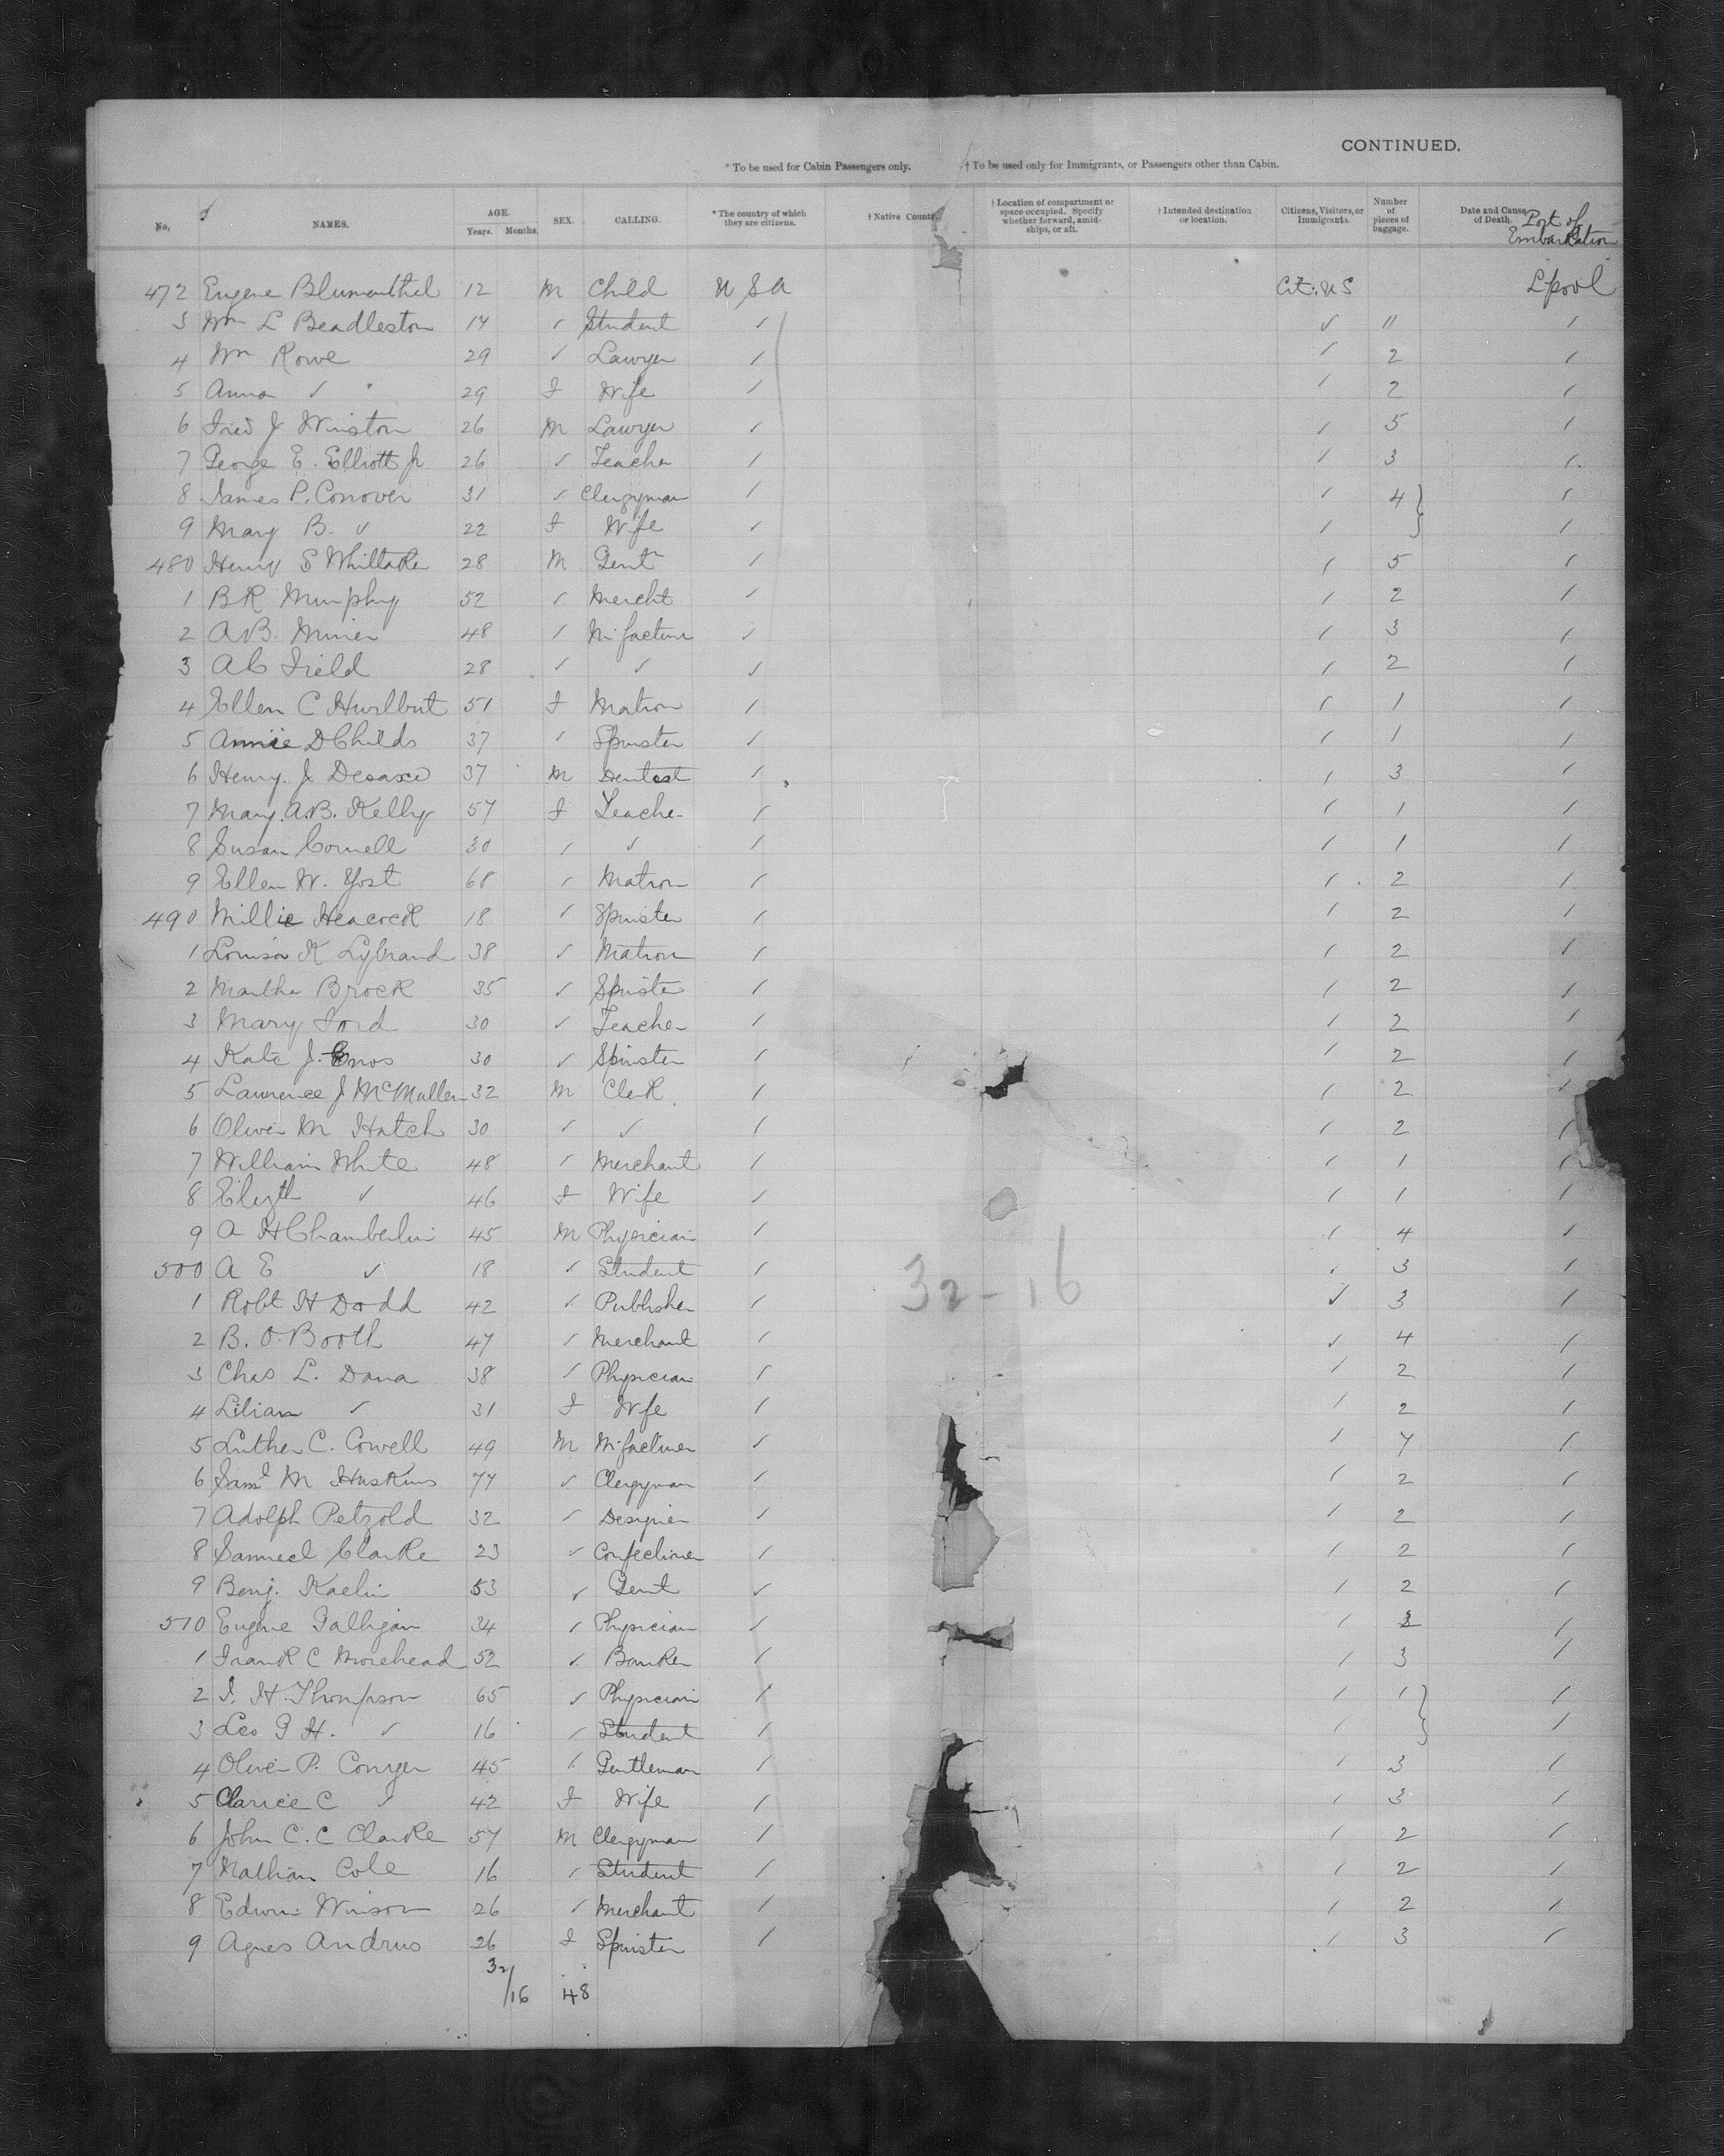 CONTINUED.
* To be used for Cabin Passengers only. † To be used only for Immigrants, or Passengers other than Cabin.
No. NAMES. AGE. Years. Months. SEX. CALLING. * The country of which they are citizens. † Native County. † Location of compartment or space occupied. Specify whether forward, amidships, or aft. † Intended destination or location. Citizens, Visitors, or Immigrants. Number of pieces of baggage. Date and Cause of Death. Port of Embarkation
472 Eugene Blumenthal 12 M Child U S A Cit: U S L'pool
3 Wm L Beadleston 14 ✓ Student ✓ ✓ 11 /
4 Wm Rowe 29 ✓ Lawyer / / 2 /
5 Anna ✓ 29 F Wife / / 2 /
6 Fred J Winston 26 M Lawyer / / 5 /
7 George E. Elliott Jr 26 ✓ Teacher / / 3 /
8 James P. Conover 31 ✓ Clergyman / / 4 /
9 Mary B. ✓ 22 F Wife / / /
480 Henry S Whittaker 28 M Gent / / 5 /
1 B R Murphy 52 / Mercht / / 2 /
2 A B. Miner 48 / M'facturer / / 3 /
3 A C Field 28 / ✓ / / 2 /
4 Ellen C Hurlbut 51 F Matron / / 1 /
5 Annie D Childs 37 / Spinster / / 1 /
6 Henry. J. 37 M Dentist / / 3 /
7 Mary. A. B. Kelly 57 F Teacher / / 1 /
8 Susan Cornell 30 / ✓ / / 1 /
9 Ellen W. Yost 68 / Matron / / 2 /
490 Millie Heacock 18 / Spinster / / 2 /
1 Louisa K Lybrand 38 ✓ Matron / / 2 /
2 Martha Brock 35 ✓ Spinster / / 2 /
3 Mary Ford 30 ✓ Teacher / / 2 /
4 Kate J. Enos 30 ✓ Spinster / / 2 /
5 Lawrence J McMullen 32 M Clerk / / 2 /
6 Oliver M Hatch 30 ✓ ✓ / / 2 /
7 William White 48 / Merchant / / 1 /
8 Elizth ✓ 46 F Wife ✓ / 1 /
9 A H Chamberlin 45 M Physician / / 4 /
500 A E ✓ 18 ✓ Student / / 3 /
1 Robt H Dodd 42 / Publisher / ✓ 3 /
2 B. O. Booth 47 / Merchant / ✓ 4 /
3 Chas L. Dana 38 / Physician / / 2 /
4 Lilian ✓ 31 F Wife / / 2 /
5 Luther C. Crowell 49 M M'facturer ✓ / 7 /
6 Saml M Haskins 77 ✓ Clergyman / / 2 /
7 Adolph Petzold 32 ✓ Designer / / 2 /
8 Samuel Clarke 23 ✓ Confectioner / / 2 /
9 Benj. Kaelin 53 ✓ Gent ✓ / 2 /
510 Eugene Galligan 34 / Physician / / 2 /
1 Frank C Morehead 52 / Banker / / 3 /
2 J. H. Thompson 65 ✓ Physician / / 1 /
3 Leo G H. ✓ 16 / Student / / /
4 Oliver P. Conger 45 / Gentleman / / 3 /
5 Clarice C ✓ 42 F Wife / / 3 /
6 John C. C Clarke 57 M Clergyman / / 2 /
7 Nathan Cole 16 / Student / / 2 /
8 Edwin Winson 26 ✓ Merchant / / 2 /
9 Agnes Andrus 26 F Spinster / / 3 /
32 - 16
32/16 48